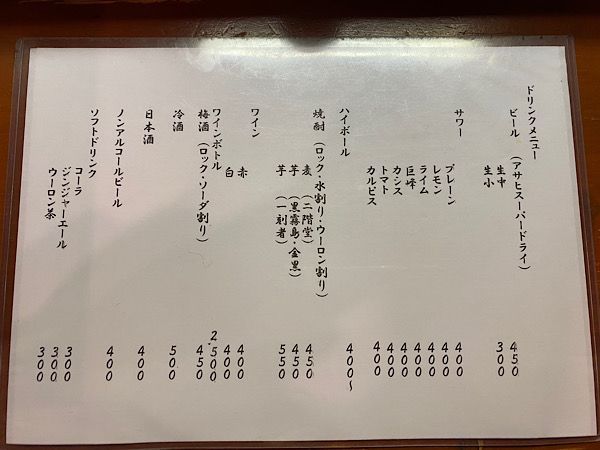 ドリンクメニュー
ビール （アサヒスーパードライ）
生中 450
生小 300
サワー
プレーン 400
レモン 400
ライム 400
巨峰 400
カシス 400
トマト 400
カルピス 400
ハイボール 400〜
焼酎 （ロック・水割り・ウーロン割り）
麦 （二階堂） 450
芋 （黒霧島・金黒） 450
芋 （一刻者） 550
ワイン
赤 400
白 400
ワインボトル 2.500
梅酒 （ロック・ソーダ割り） 450
冷酒 500
日本酒 400
ノンアルコールビール 400
ソフトドリンク
コーラ 300
ジンジャーエール 300
ウーロン茶 300